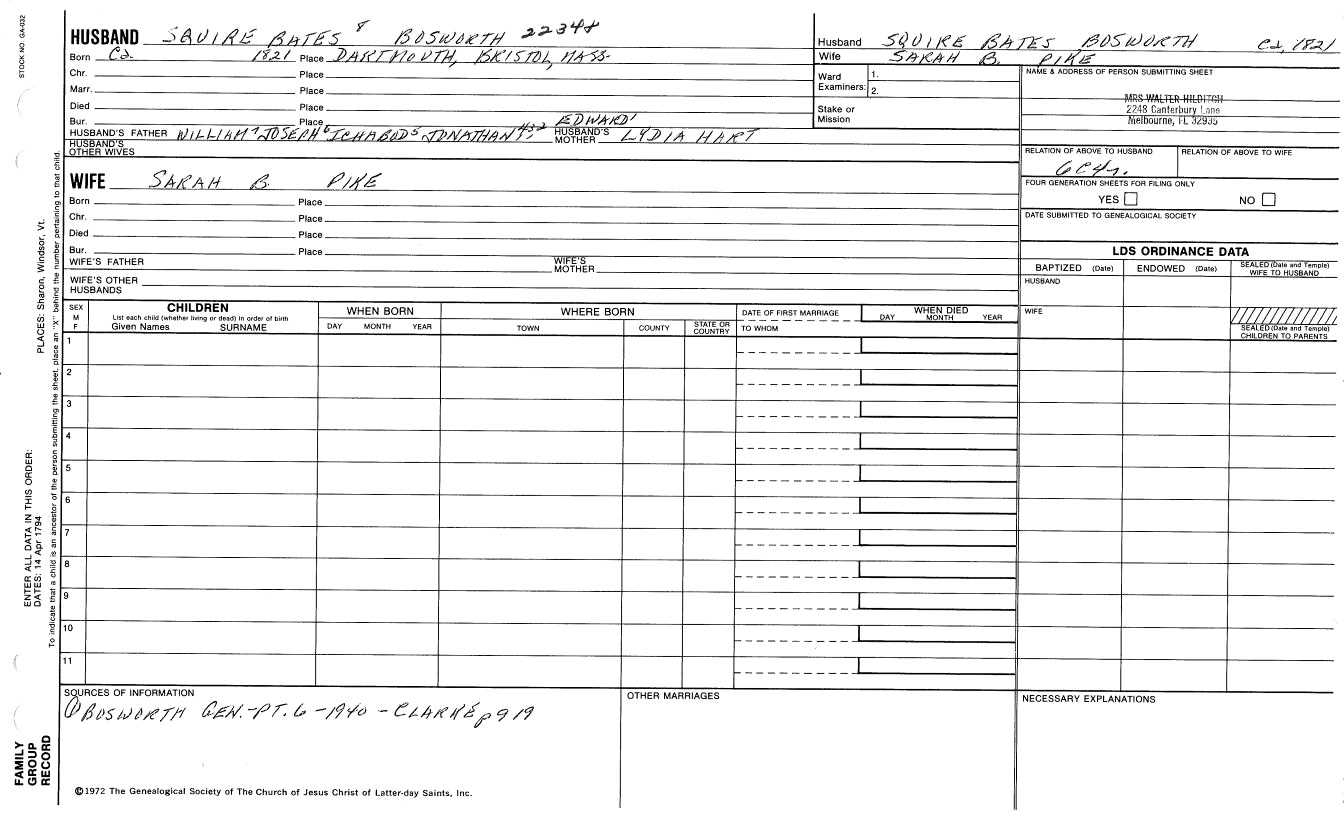 STOCK NO. GA-032
HUSBAND SQUIRE BATES 8 BOSWORTH 22348
Born Ca. 1821 Place DARTMOUTH, BRISTOL, MASS.
Chr. Place
Marr. Place
Died Place
Bur. Place
EDWARD1
HUSBAND'S FATHER WILLIAM7 JOSEPH6 ICHABOD5 JONATHAN4,3,2 HUSBAND'S MOTHER LYDIA HART
HUSBAND'S OTHER WIVES
WIFE SARAH B. PIKE
Born Place
Chr. Place
Died Place
Bur. Place
WIFE'S FATHER WIFE'S MOTHER
WIFE'S OTHER HUSBANDS
Husband SQUIRE BATES BOSWORTH Ca, 1821
Wife SARAH B. PIKE
Ward Examiners: 1. 2.
Stake or Mission
NAME & ADDRESS OF PERSON SUBMITTING SHEET
MRS WALTER HILDITCH
2248 Canterbury Lane
Melbourne, FL 32935
RELATION OF ABOVE TO HUSBAND RELATION OF ABOVE TO WIFE
6C4r.
FOUR GENERATION SHEETS FOR FILING ONLY
YES NO
DATE SUBMITTED TO GENEALOGICAL SOCIETY
LDS ORDINANCE DATA
BAPTIZED (Date) ENDOWED (Date) SEALED (Date and Temple) WIFE TO HUSBAND
HUSBAND
WIFE
SEALED (Date and Temple) CHILDREN TO PARENTS
SEX M F
CHILDREN
List each child (whether living or dead) in order of birth
Given Names SURNAME
WHEN BORN
DAY MONTH YEAR
WHERE BORN
TOWN COUNTY STATE OR COUNTRY
DATE OF FIRST MARRIAGE
TO WHOM
WHEN DIED
DAY MONTH YEAR
1
2
3
4
5
6
7
8
9
10
11
SOURCES OF INFORMATION
① BOSWORTH GEN.-PT. 6 -1940 - CLARKE p919
OTHER MARRIAGES
NECESSARY EXPLANATIONS
©1972 The Genealogical Society of The Church of Jesus Christ of Latter-day Saints, Inc.
FAMILY GROUP RECORD
ENTER ALL DATA IN THIS ORDER:
DATES: 14 Apr 1794 PLACES: Sharon, Windsor, Vt.
To indicate that a child is an ancestor of the person submitting the sheet, place an "X" behind the number pertaining to that child.